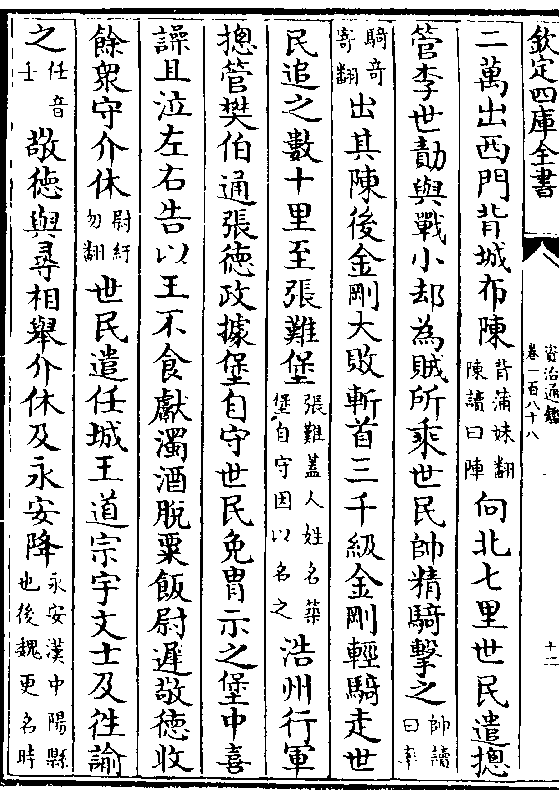 欽定四庫全書
資治通鑑
卷一百八十八
十二
二萬出西門背城布陳背蒲妹翻陳讀曰陣向北七里世民遣摠
管李世勣與戰小却為賊所乘世民帥精騎擊之帥讀曰率
騎奇寄翻出其陳後金剛大敗斬首三千級金剛輕騎走世
民追之數十里至張難堡張難蓋人姓名築堡自守因以名之浩州行軍
摠管樊伯通張徳政據堡自守世民免胄示之堡中喜
譟且泣左右告以王不食獻濁酒脫粟飯尉遲敬徳收
餘衆守介休尉紆勿翻世民遣任城王道宗宇文士及徃諭
之任音壬敬徳與尋相舉介休及永安降永安漢中陽縣也後魏更名時